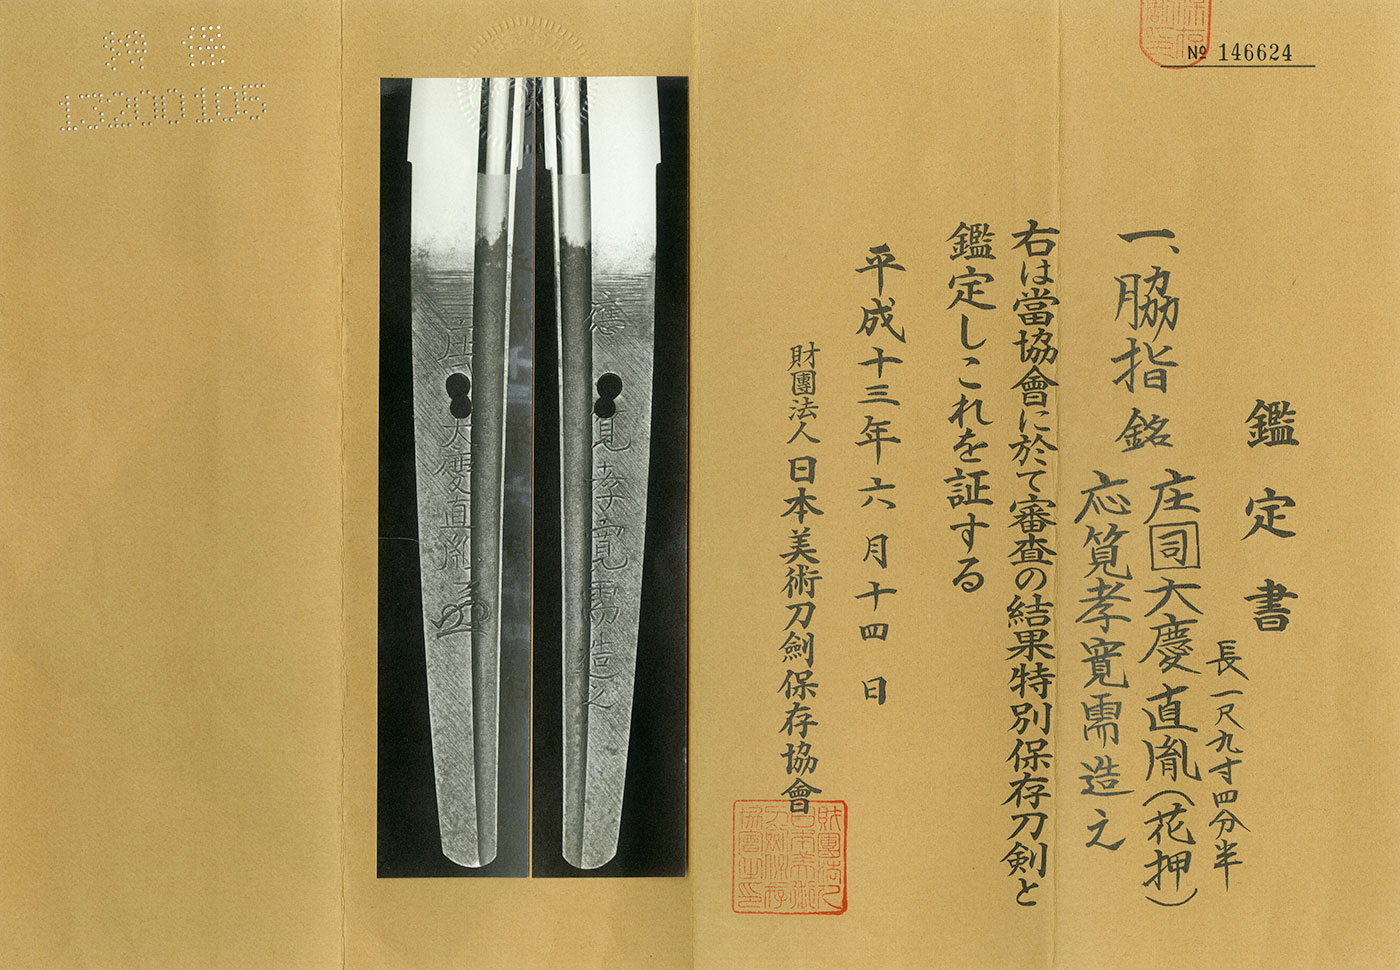 № 146624
鑑定書
長一尺九寸四分半
一、脇指 銘 庄司大慶直胤(花押)
応筧孝寛需造之
右は當協會に於て審査の結果特別保存刀剣と
鑑定しこれを証する
平成十三年六月十四日
財團法人日本美術刀劍保存協會
財團法人日本美術刀劍保存協會之印
應筧孝寛需造之
庄 大慶直胤
特保
13200105